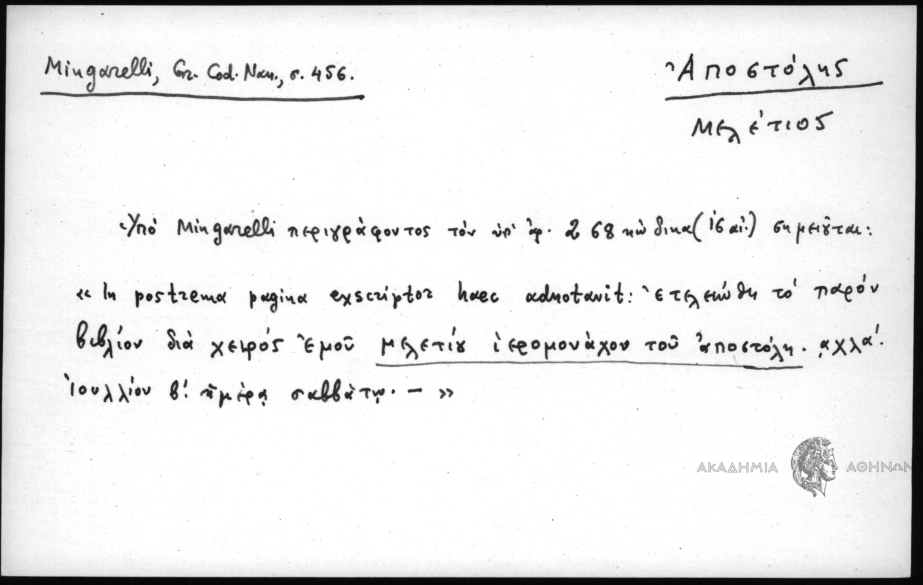 Mingarelli, Gr. Cod. Nan., σ. 456.
Ἀποστόλης
Μελέτιος
Ὑπὸ Mingarelli περιγράφοντος τὸν ὑπ' ἀρ. 268 κώδικα (16 αἰ.) σημειοῦται:
« In postrema pagina exscriptor haec adnotavit: Ἐτελειώθη τὸ παρόν
βιβλίον διὰ χειρός ἐμοῦ μελετίου ἱερομονάχου τοῦ ἀποστόλη. ͵αχλα΄.
Ἰουλλίου β΄. ἡμέρᾳ σαββάτῳ. — »
ΑΚΑΔΗΜΙΑ ΑΘΗΝΩΝ